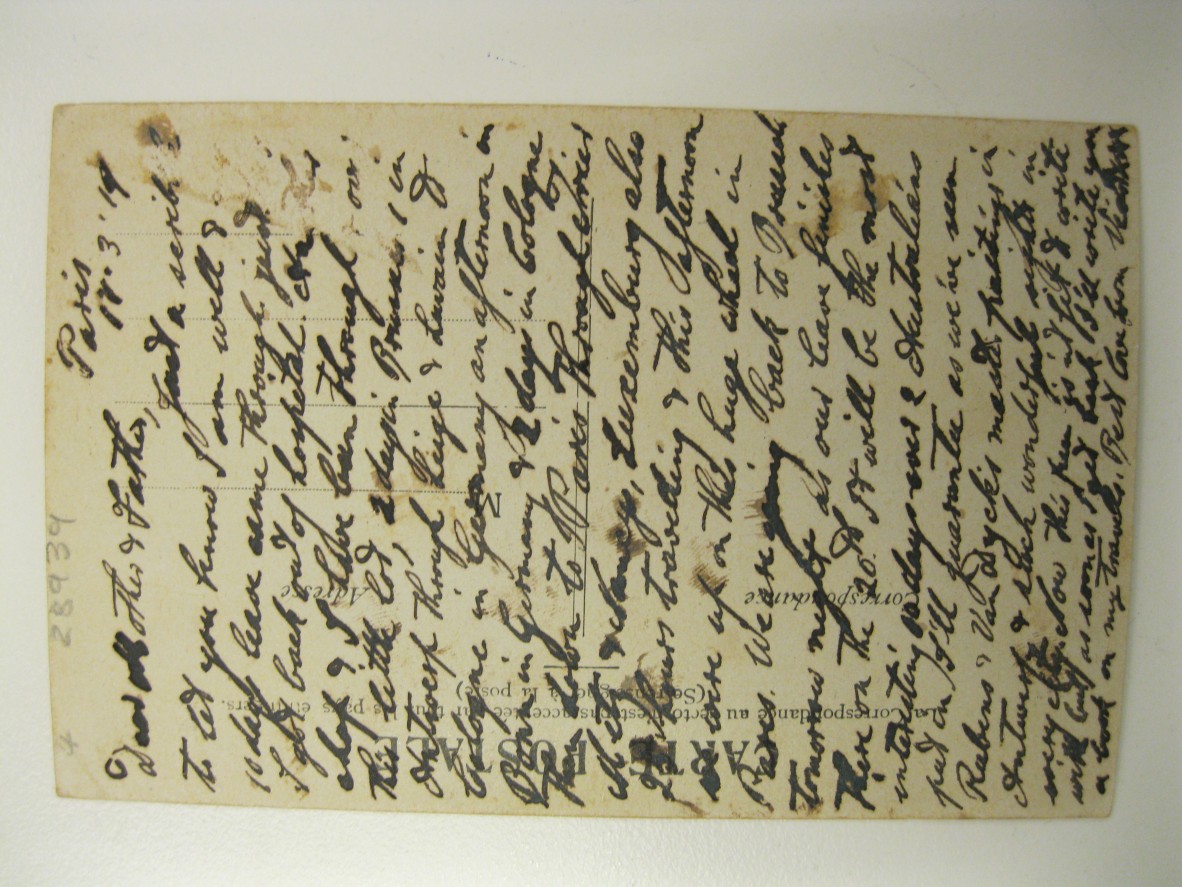 4 28939
Paris
18.3.19
Dear Mother & Father,
Just a scrib
to let you know I am well &
10 days leave came through just
I got back out of hospital. Own
chap & I have been through
this little lot, 2 days in Brussels 1 in
Antwerp through Liege & Luvain &
Cologne in Germany an afternoon in
Bonn in Germany & 2 days in Cologne
then down to Paris through cities
Metz & Nancy, Luxemburg also
24 hours travelling & this afternoon
we were up on this huge wheel in
Paris. We're going back to Brussels
tomorrow night as our leave finishes
there on the 20th. It will be the most
interesting 10 days ever 2 Australians
put in I'll guarantee as we've seen
Rubens & Van Dyck's masterpaintings in
Antwerp & such wonderful sights in
every city. Now this pen gives out if I write
with luck as soon as I get back I'll write you
a book on my travels. Best love from
CARTE POSTALE
La Correspondance au verto n'est pas acceptée par tous les pays étrangers.
(Se renseigner à la poste)
Correspondance
Adresse
M